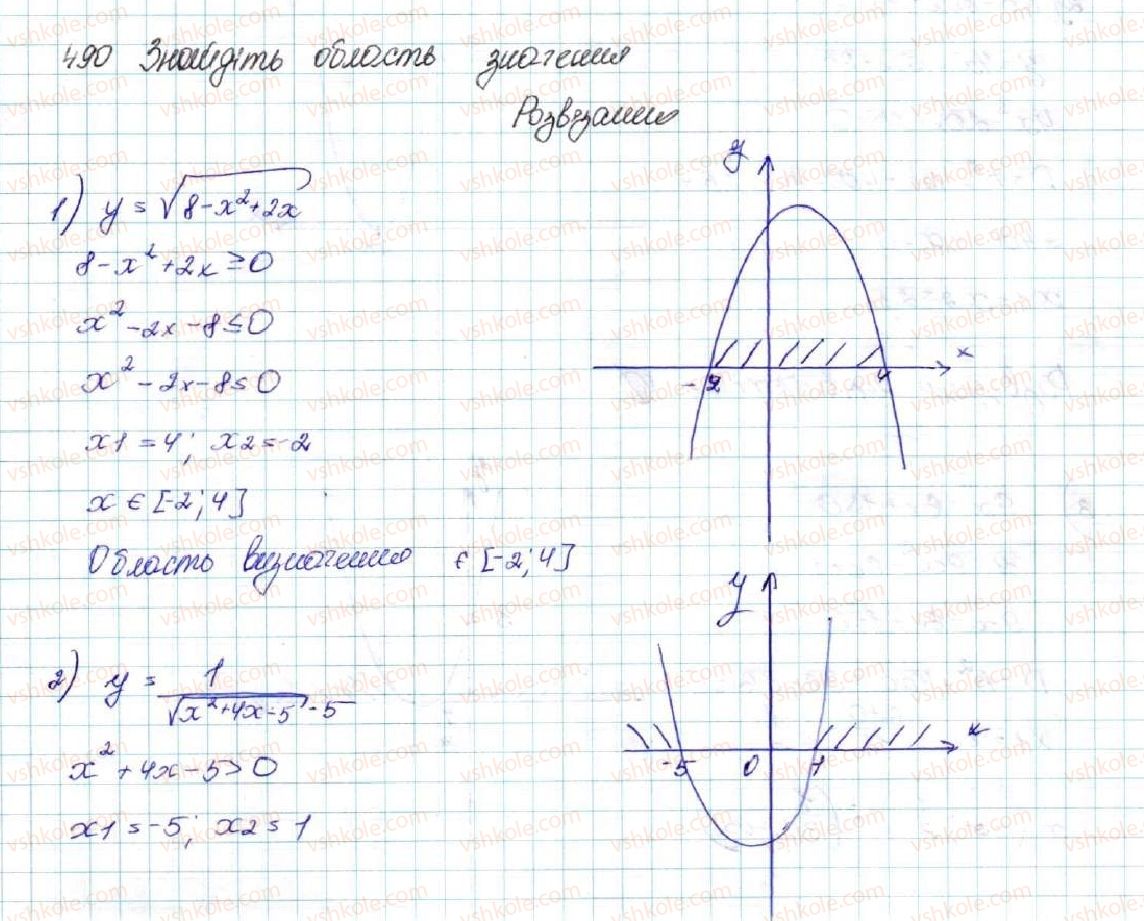 490 Знайдіть область значення
Розвезання
1) y = √8-x²+2x
8-x²+2x≥0
x²-2x-8≤0
x²-2x-8≤0
x1=4; x2=-2
x ∈ [-2;4]
Область визначення ∈ [-2;4]
y
x
-2
4
2) y = 1
√x²+4x-5 -5
x²+4x-5>0
x1=-5; x2=1
y
x
-5 0 1
vshkole.com